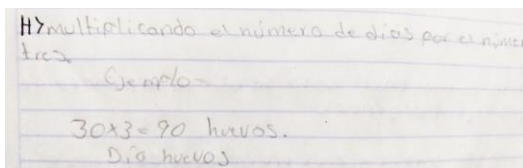 H> multiplicando el número de dias por el númer
tres
Ejemplo=
30x3=90 huevos.
Día huevos